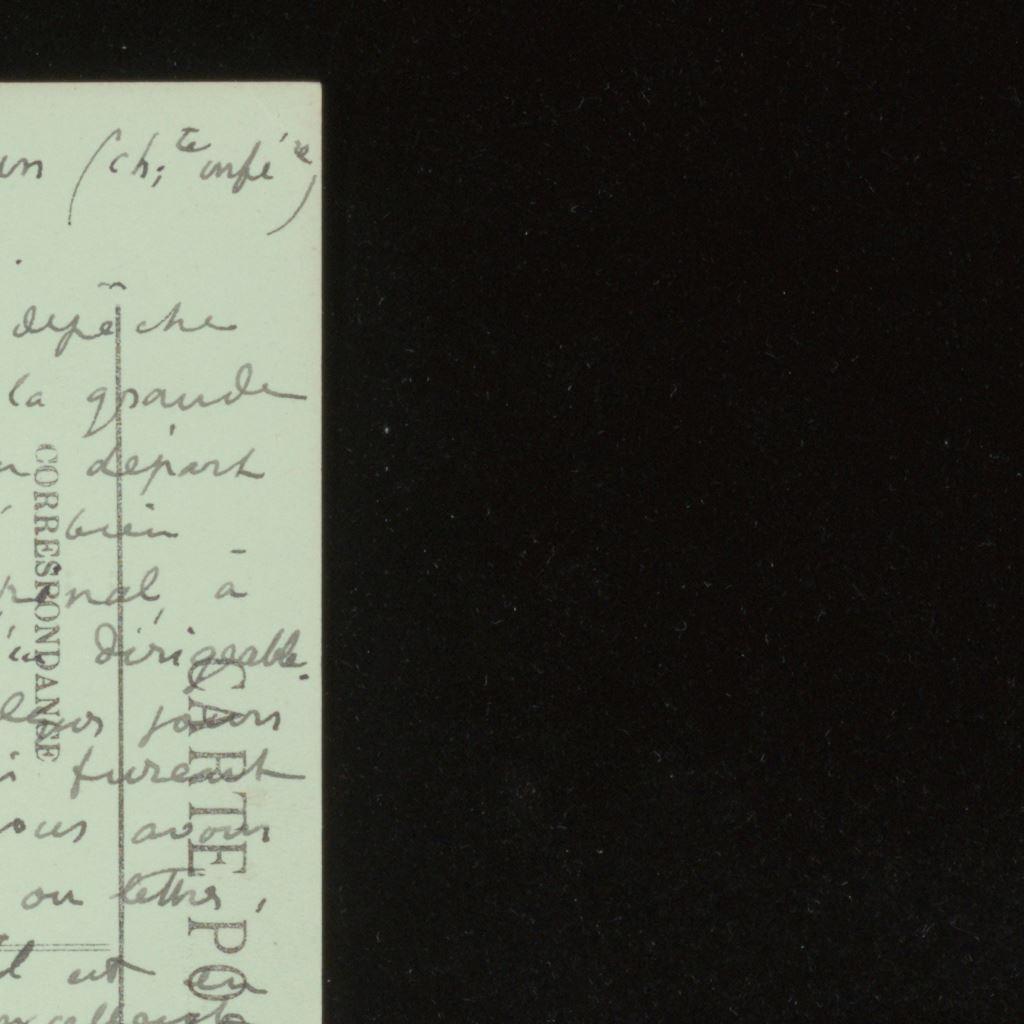 (ch;te infére)
dépêche
la grande
départ
bien
à
dirigeable.
jours
furent
avons
ou lettre,
est en
CORRESPONDANCE
CARTE PO